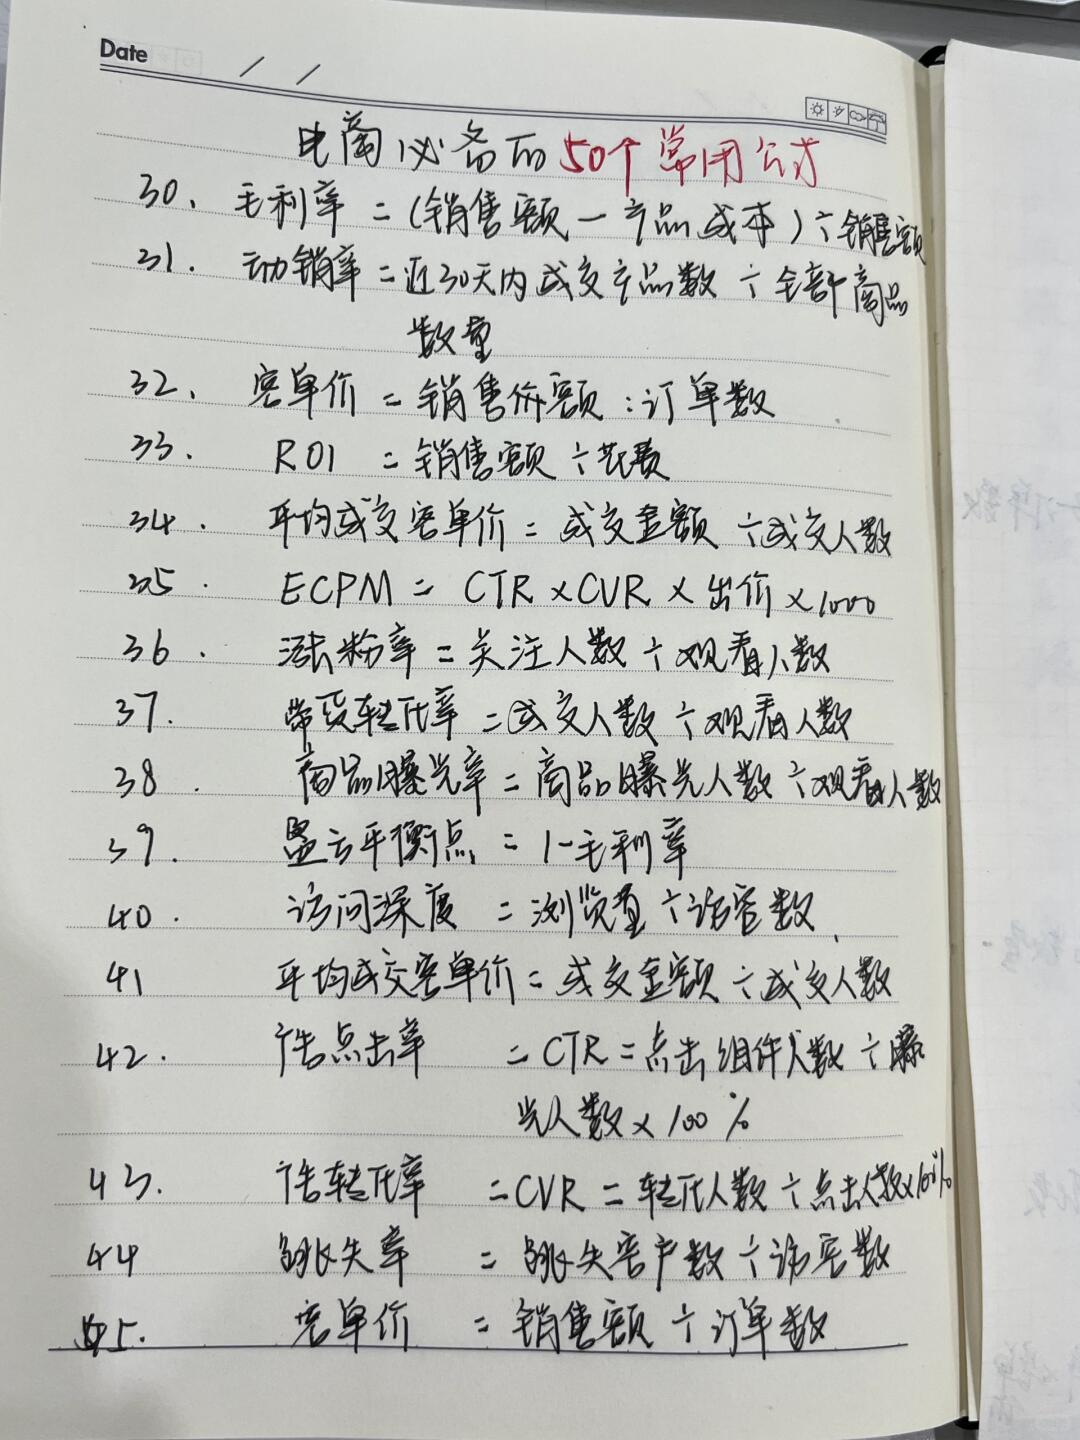 Date / /
电商必备的50个常用公式
30. 毛利率 = (销售额－产品成本)÷销售额
31. 动销率 = 近30天内成交产品数 ÷ 全部商品
数量
32. 客单价 = 销售价额 : 订单数
33. ROI = 销售额÷花费
34. 平均成交客单价 = 成交金额 ÷成交人数
35. ECPM = CTR×CVR×出价×1000
36. 涨粉率 = 关注人数÷观看人数
37. 带货转化率 = 成交人数÷观看人数
38. 商品曝光率 = 商品曝光人数÷观看人数
39. 盈亏平衡点 = 1-毛利率
40. 访问深度 = 浏览量÷访客数
41 平均成交客单价 = 成交金额÷成交人数
42. 广告点击率 = CTR = 点击组件人数÷曝
光人数×100%
43. 广告转化率 = CVR = 转化人数÷点击人数×100%
44 跳失率 = 跳失客户数÷访客数
45. 客单价 = 销售额÷订单数